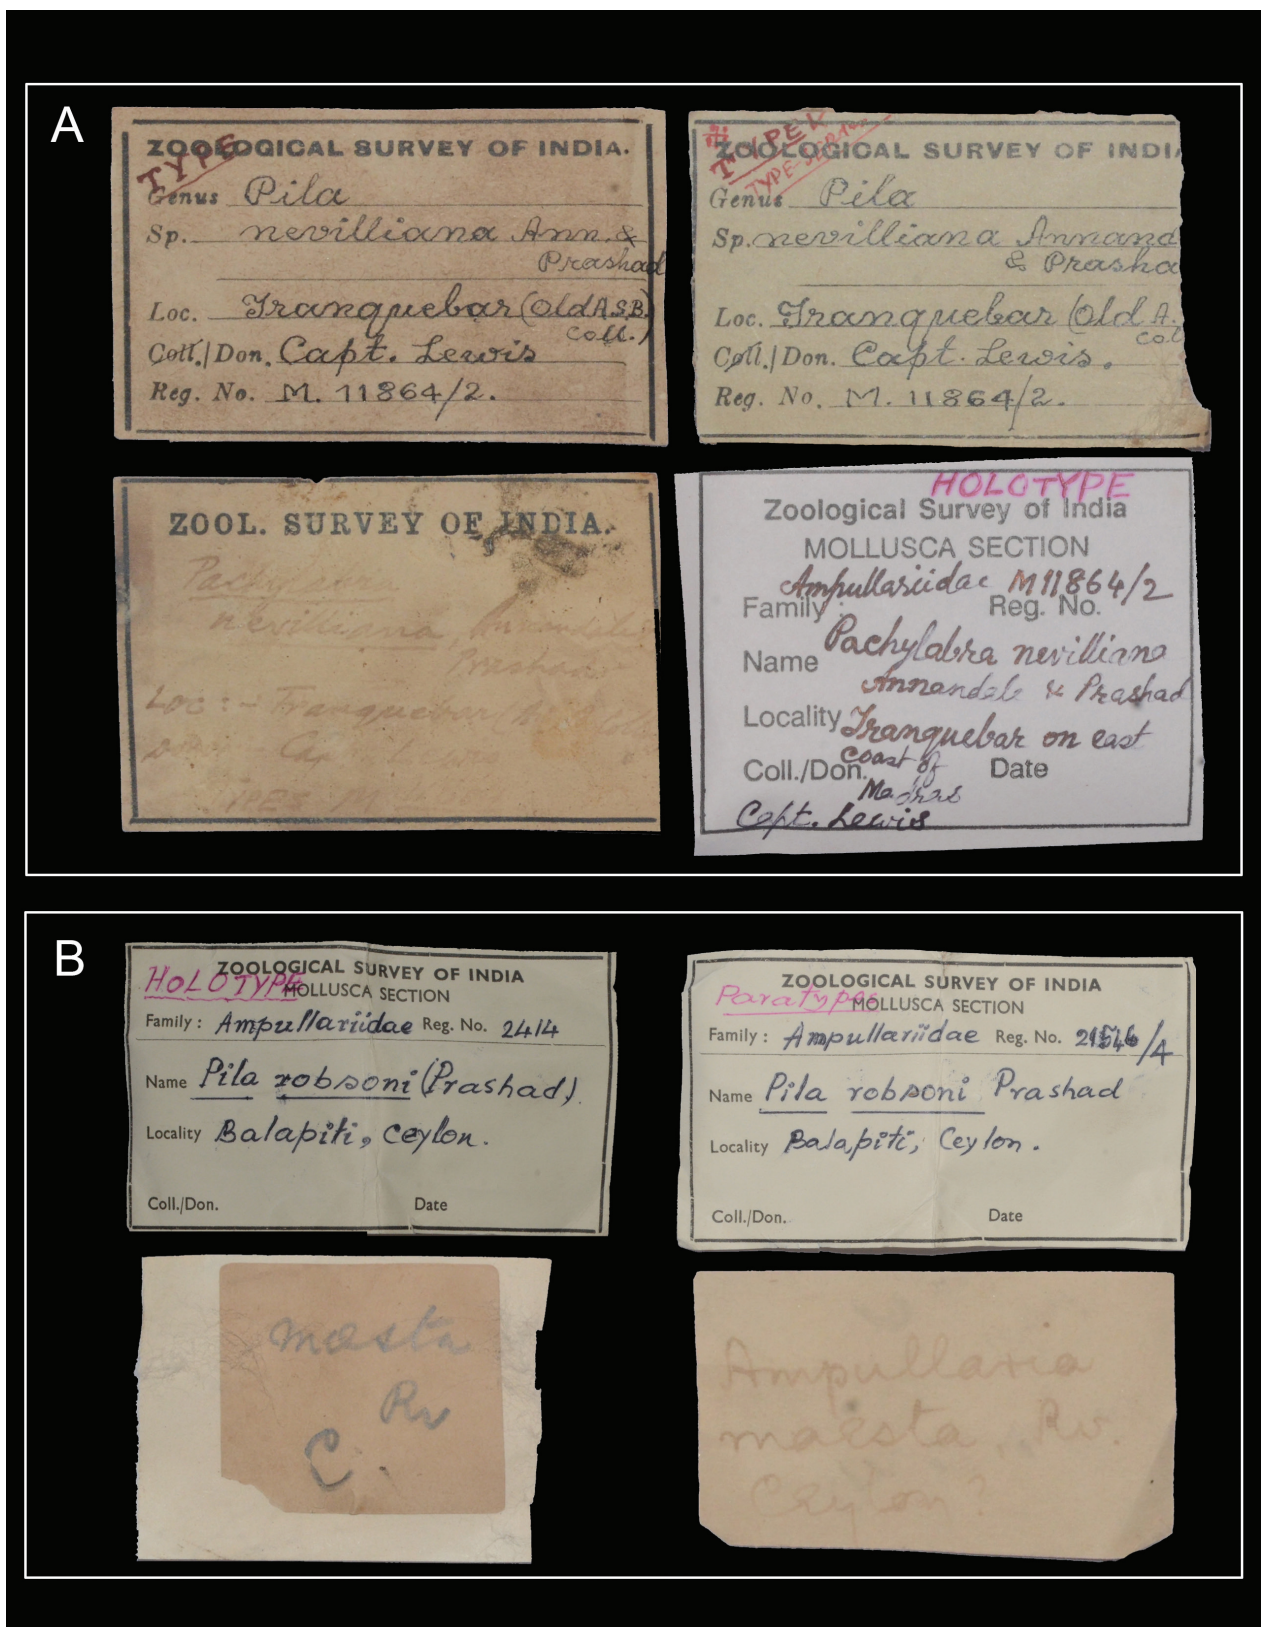 A
TYPE
ZOOLOGICAL SURVEY OF INDIA.
Genus Pila
Sp. nevilliana Ann. &
Prashad
Loc. Tranquebar (Old A.S.B.
Coll.)
Coll./Don. Capt. Lewis
Reg. No. M. 11864/2.
TYPE
ZOOLOGICAL SURVEY OF INDI
Genus Pila
Sp. nevilliana Annand
& Prasha
Loc. Tranquebar (Old A.
Col
Coll./Don. Capt. Lewis.
Reg. No. M. 11864/2.
ZOOL. SURVEY OF INDIA.
nevilliana, Annandale
Prashad
Loc :- Tranquebar
HOLOTYPE
Zoological Survey of India
MOLLUSCA SECTION
Ampullariidae M11864/2
Family : Reg. No.
Name Pachylabra nevilliana
Annandale & Prashad
Locality Tranquebar on east
coast of
Coll./Don. Date
Madras
Capt. Lewis
B
HOLOTYPE
ZOOLOGICAL SURVEY OF INDIA
MOLLUSCA SECTION
Family : Ampullariidae Reg. No. 2414
Name Pila robsoni (Prashad)
Locality Balapiti, Ceylon.
Coll./Don. Date
ZOOLOGICAL SURVEY OF INDIA
Paratypes MOLLUSCA SECTION
Family : Ampullariidae Reg. No.
Name Pila robsoni Prashad
Locality Balapiti, Ceylon.
Coll./Don. Date
mœsta
Rv
C.
Ampullaria
maesta, Rv.
Ceylon?